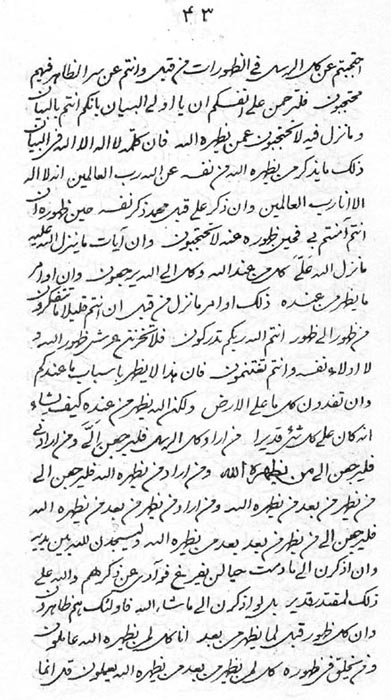 ٤٣
احتجبتم عن كل الرسل في الظهورات من قبل وانتم عن سر الظاهر فيهم
محتجبون فلترحمن على انفسكم ان يا اولي البيان بانكم انتم بالبيان
وما نزل فيه لا تحتجبون عمن يظهره الله فان كلمة لا اله الا الله في البيان
ذلك ما يذكر من يظهره الله من نفسه عن الله رب العالمين انه لا اله
الا انا رب العالمين وان ذكر على قبل محمد ذكر نفسه حين ظهوره ان
انتم آمنتم بي فحين ظهوره عنه لا تحتجبون وان آيات ما ينزل الله عليه
ما نزل الله علي كل من عند الله وكل الى الله يرجعون وان اوامر
ما يظهر من عنده ذلك اوامر ما نزل من قبل ان انتم قليلا ما تتفكرون
من ظهور الى ظهور انتم الله ربكم تدركون فلا تحزنن عرش ظهور الله و
لا ادلاء نفسه وانتم تغتنمون فان هذا لا يظهر باسباب ما عندكم
وان تفدون كل ما على الارض ولكن الله يظهر من عنده كيف يشاء
انه كان على كل شيء قديرا من اراد كل الرسل فليرجعن الي ومن ارادني
فليرجعن الى من يظهره الله ومن اراد من يظهره الله فليرجعن الى
من يظهر من بعد من يظهره الله ومن اراد من يظهر من بعد من يظهره الله
فليرجعن الى من يظهر من بعد بعد من يظهره الله وليسجدن لله بين يديه
وان اذكرن الى ما دمت حيا لن يفرغ فؤادي عن ذكرهم والله على
ذلك لمقتدر قدير بل لو اذكرن الى ما شاء الله فاولئك هم ظاهرون
وان كل ظهور قبل لما يظهر من بعد انا كل لمن يظهره الله عاملون
ومن يخلق في ظهوره كل لمن يظهر من بعد من يظهره الله يعملون قل انما